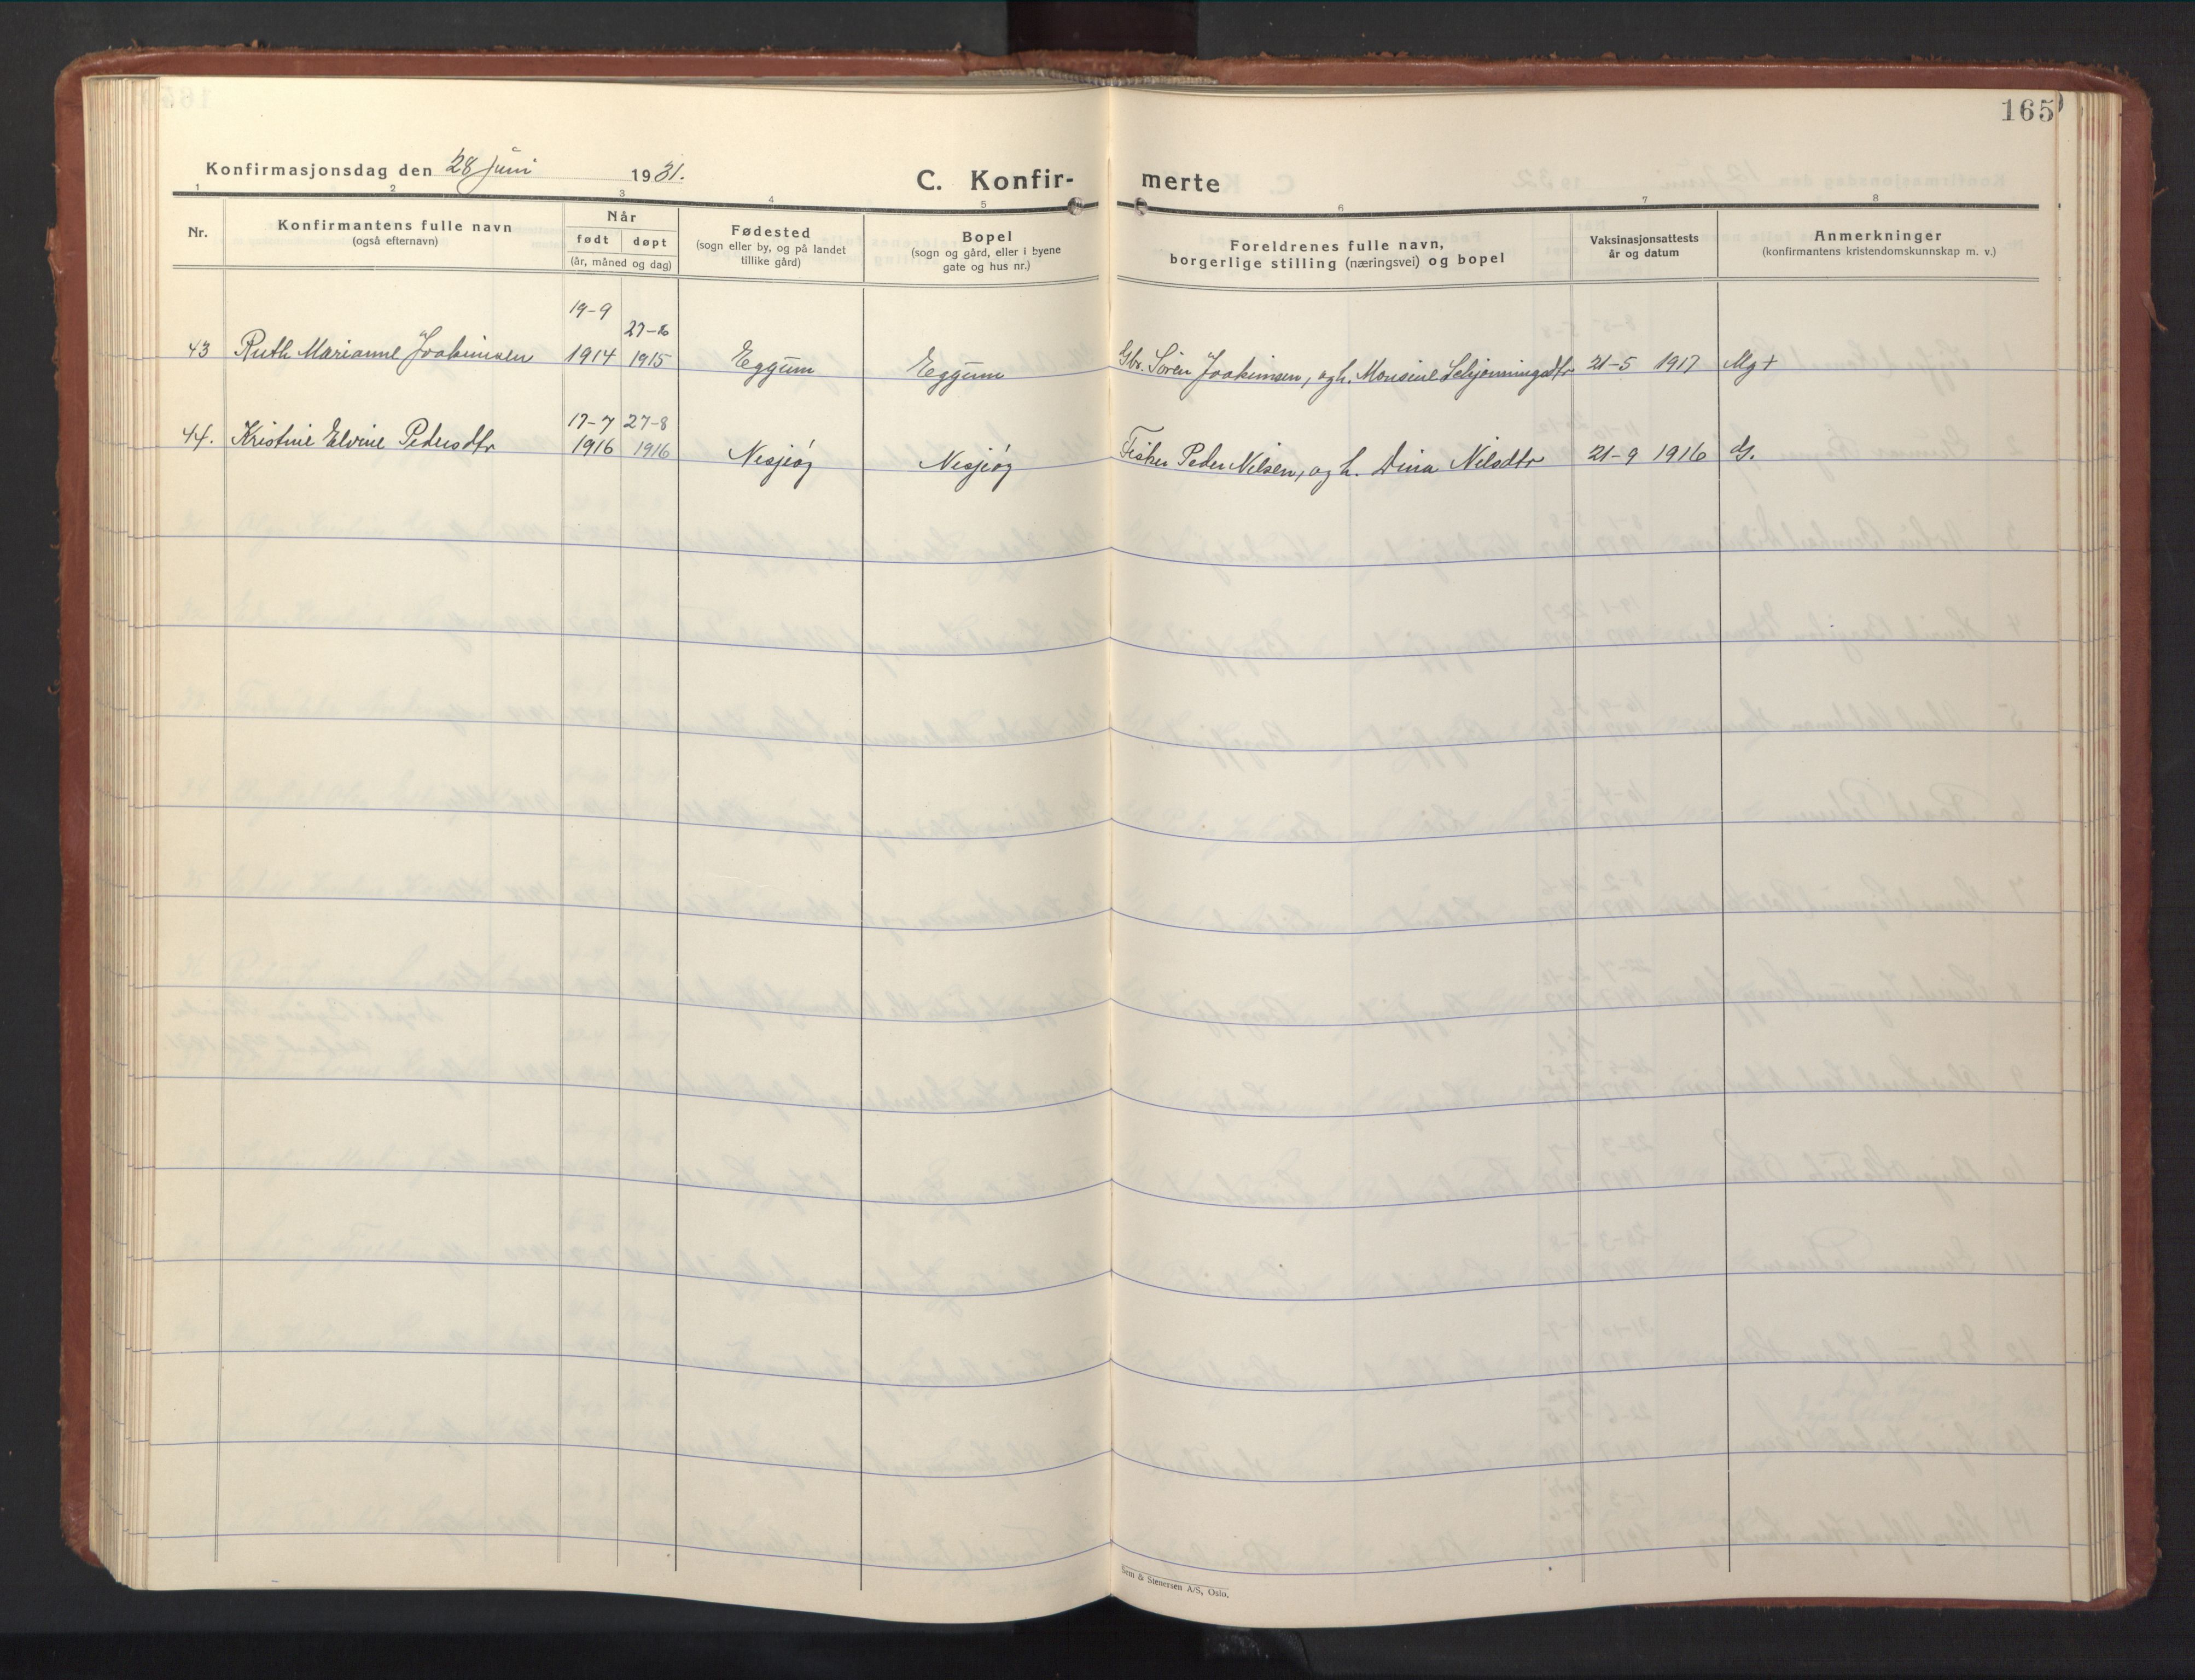 165
Konfirmasjonsdag den 28 juni 1931.
C. Konfir- merte
1 2 3 4 5 6 7 8
Nr.
Konfirmantens fulle navn
(også efternavn)
Når
født døpt
(år, måned og dag)
Fødested
(sogn eller by, og på landet
tillike gård)
Bopel
(sogn og gård, eller i byene
gate og hus nr.)
Foreldrenes fulle navn,
borgerlige stilling (næringsvei) og bopel
Vaksinasjonsattests
år og datum
Anmerkninger
(konfirmantens kristendomskunnskap m. v.)
19-9
43 Ruth Marianne Joakimsen 1914 1915 Eggum Eggum Gbr. Sören Joakimsen, og h. Monsine 21-5 1917 Mg+
17-7 27-8
44. Kristine Elvine Pedersdtr 1916 1916 Nesjeöy Nesjeöy Fisker Peder Nilsen, og h. Dina Nilsdtr 21-9 1916 G.
Sem & Stenersen A/S, Oslo.